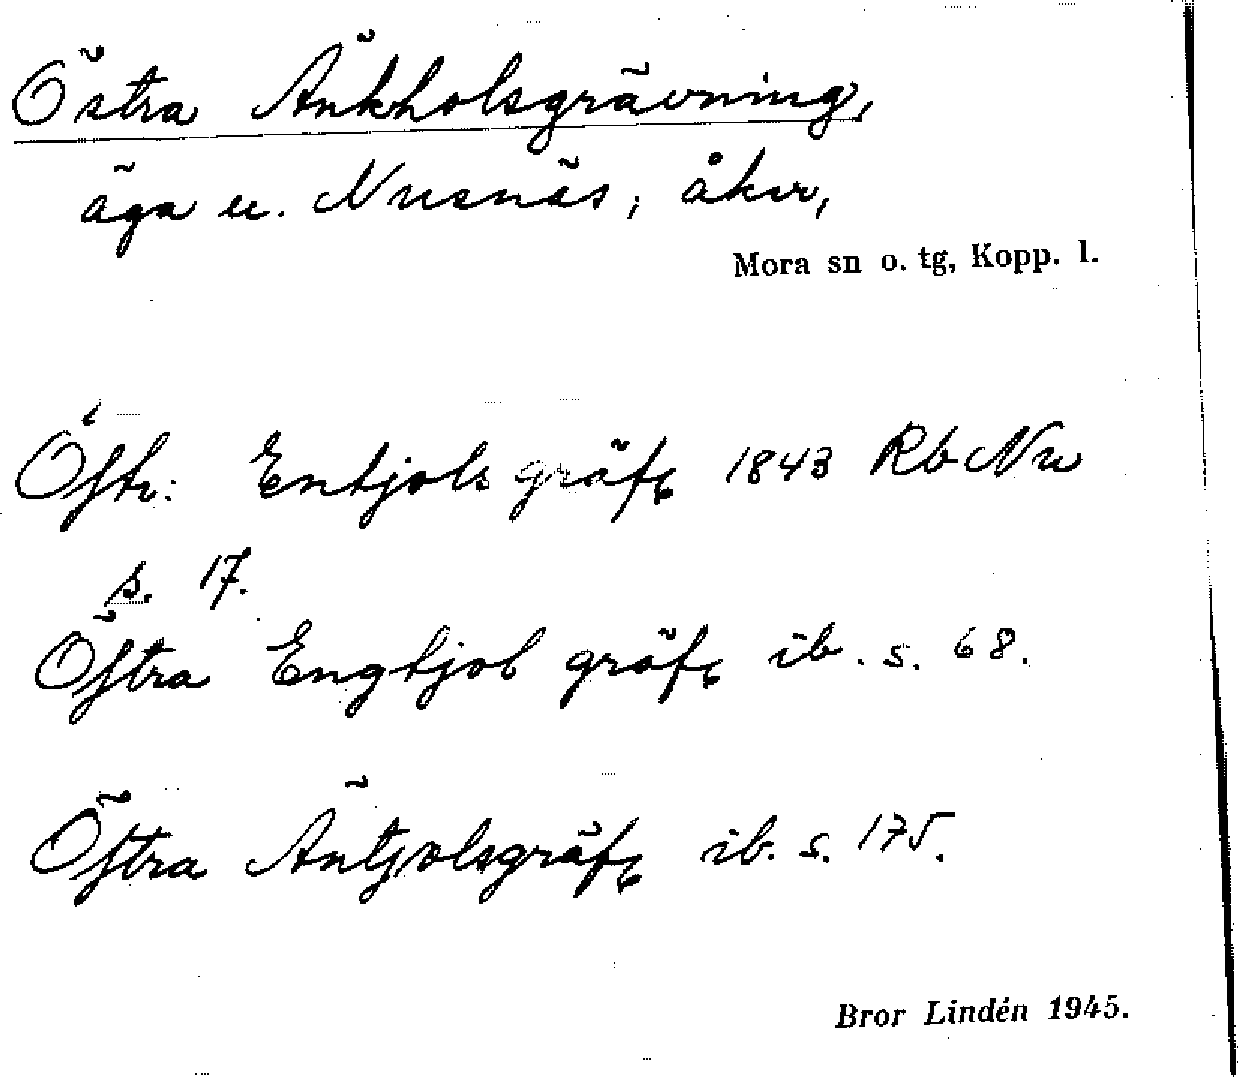 Östra Änkholsgrävning,
äga u. Nusnäs, åker,
Mora sn o. tg, Kopp. l.
Östr: Entjols gräf, 1843 Rb Nu
s. 17.
Östra Engtjol gräf, ib. s. 68.
Östra Äntjolsgräf, ib. s. 175.
Bror Lindén 1945.